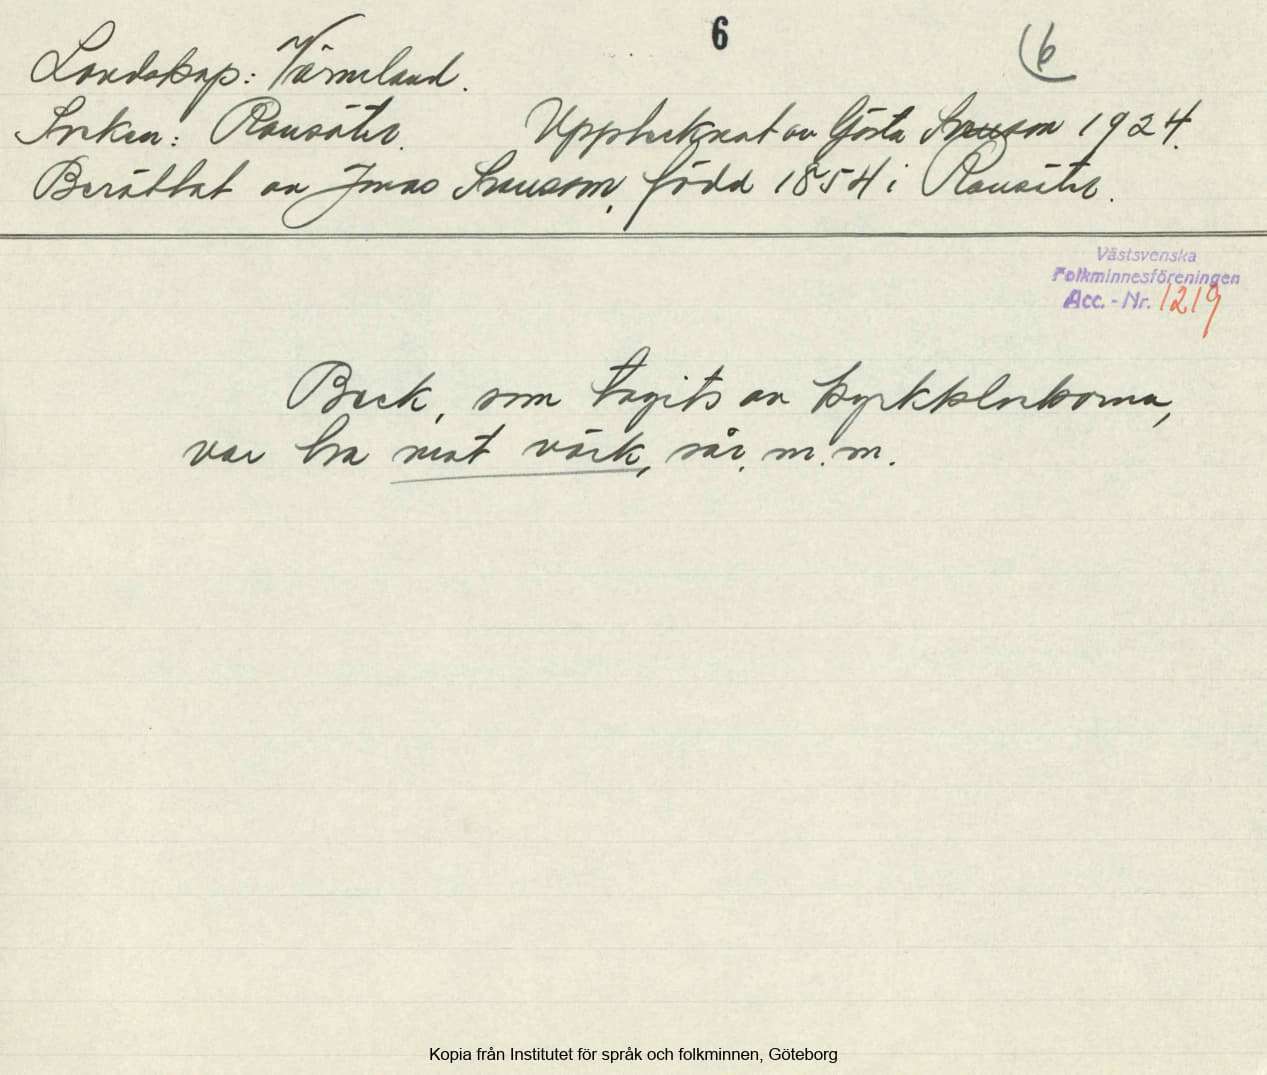 6
6
Landskap: Värmland.
Socken: Ransäter. Upptecknat av Gösta 1924.
Berättat av Jonas född 1854 i Ransäter.
Västsvenska
Folkminnesföreningen
Acc. - Nr. 1219
Beck, som tagits av kyrkklockorna,
var bra mot värk, sår, m.m.
Kopia från Institutet för språk och folkminnen, Göteborg